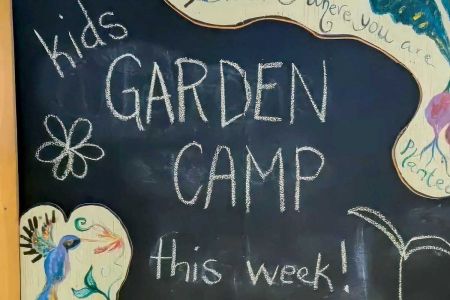 where you are
Plante
kids
GARDEN
CAMP
this week!